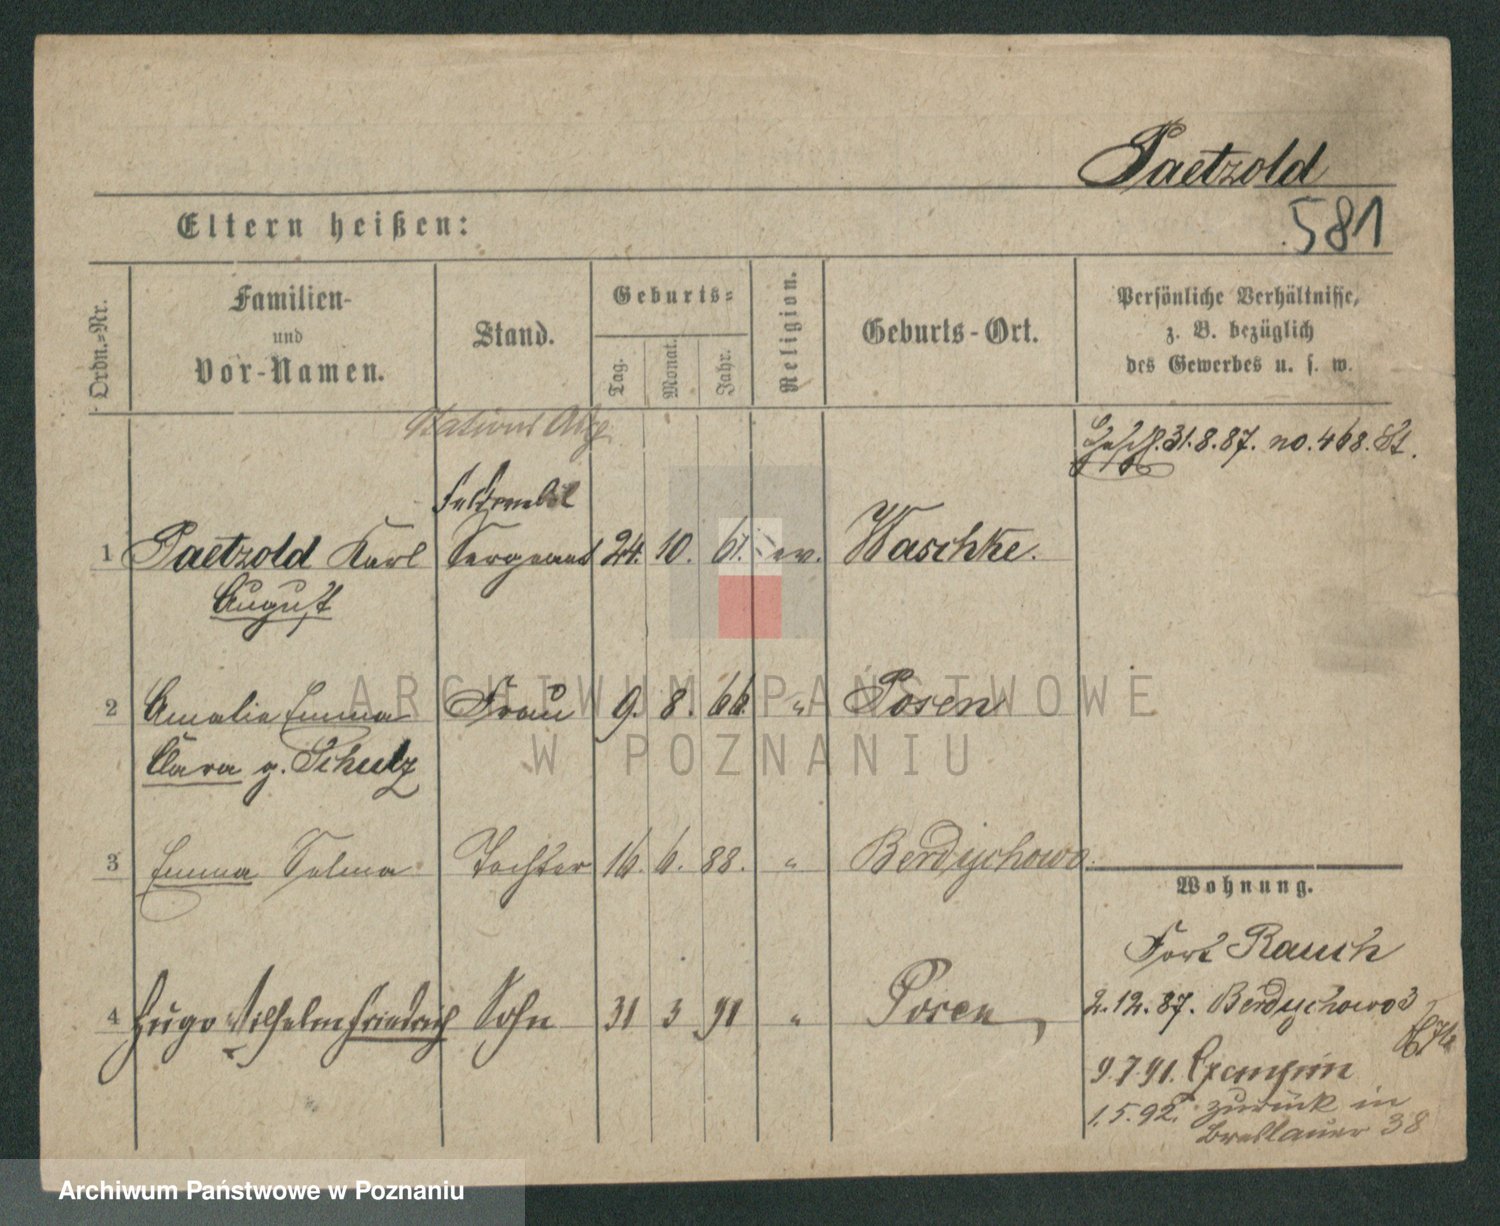 Paetzold
581
Eltern heißen:
Ordn.-Nr.
Familien-
und
Vor-Namen.
Stand.
Geburts-
Tag.
Monat.
Jahr.
Religion.
Geburts-Ort.
Persönliche Verhältnisse,
z. B. bezüglich
des Gewerbes u. s. w.
Gesch. 31.8.87. no. 468. St.
Feldwebel
1 Paetzold Karl Sergeant 24. 10. 61. ev. Waschke.
August
2 Amalie Emma Frau 9. 8. 66. " Posen
Clara g. Schulz
3 Emma Selma Tochter 16. 6. 88. " Berdychowo.
Wohnung.
Fort Rauch
4 Hugo Wilhelm Friedrich Sohn 31 3 91 " Posen
2.12.87. Berdychowo 3
9.7.91.
1.5.92. zurück in
Breslauer 38
ARCHIWUM PAŃSTWOWE
W POZNANIU
Archiwum Państwowe w Poznaniu